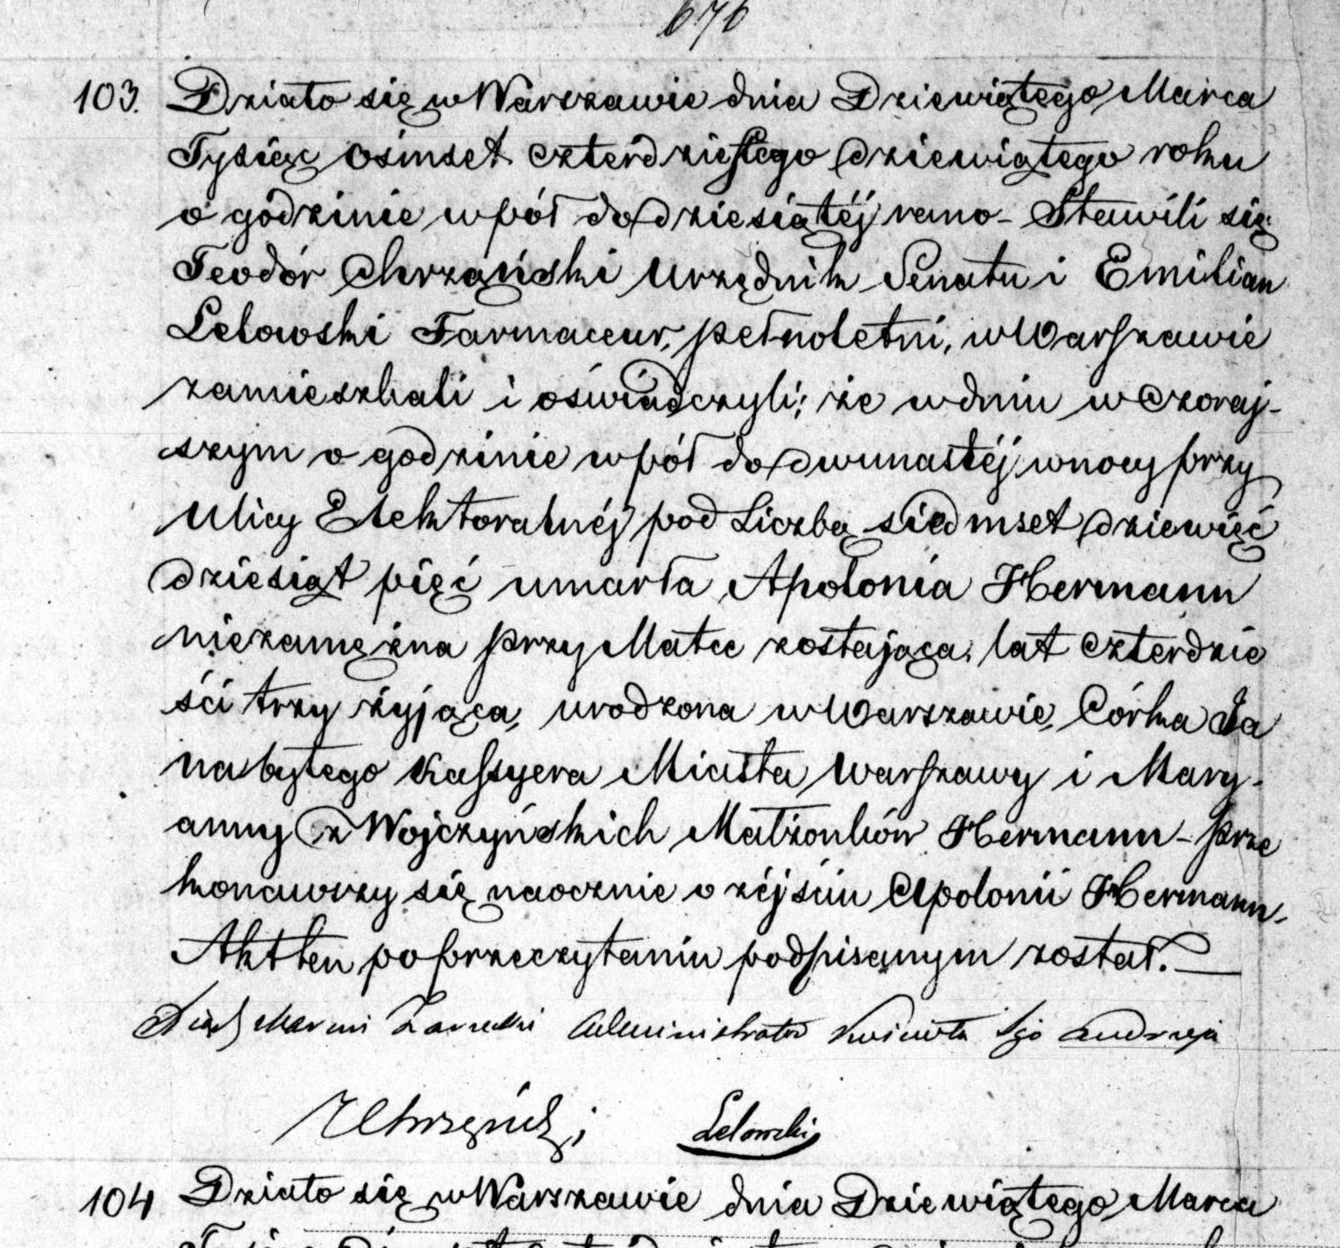 676
103. Działo się w Warszawie dnia Dziewiątego Marca
Tysiąc ośmset czterdziestego dziewiątego roku
o godzinie wpół do dziesiątéj rano - Stawili się
Teodór Chrząński Urzędnik Senatu i Emilian
Lelowski Farmaceur, pełnoletni, w Warszawie
zamieszkali i oświadczyli; że w dniu wczoraj-
szym o godzinie wpół do dwunastéj w nocy przy
Ulicy Elektoralnéj pod Liczbą siedmset dziewięć
dziesiąt pięć umarła Apolonia Hermann
niezamężna przy Matce zostająca, lat czterdzie
ści trzy żyjąca, urodzona w Warszawie, Córka Ja
na byłego Kassyera Miasta Warszawy i Mary-
anny z Wojczyńskich Małżonków Hermann - Prze
konawszy się naocznie o zéjściu Apolonii Hermann,
Akt ten po przeczytaniu podpisanym został. —
Marcin Zarzecki Administrator Kościoła Sgo Andrzeja
Lelowski
104 Działo się w Warszawie dnia Dziewiątego Marca